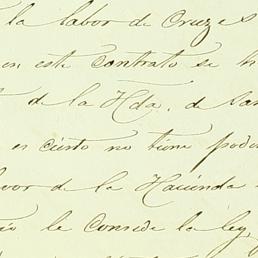 la labor de Cruzes
en este contrato se h
de la Hda. de San
es cierto no tiene poder
vor de la Hacienda
le Concede la ley,